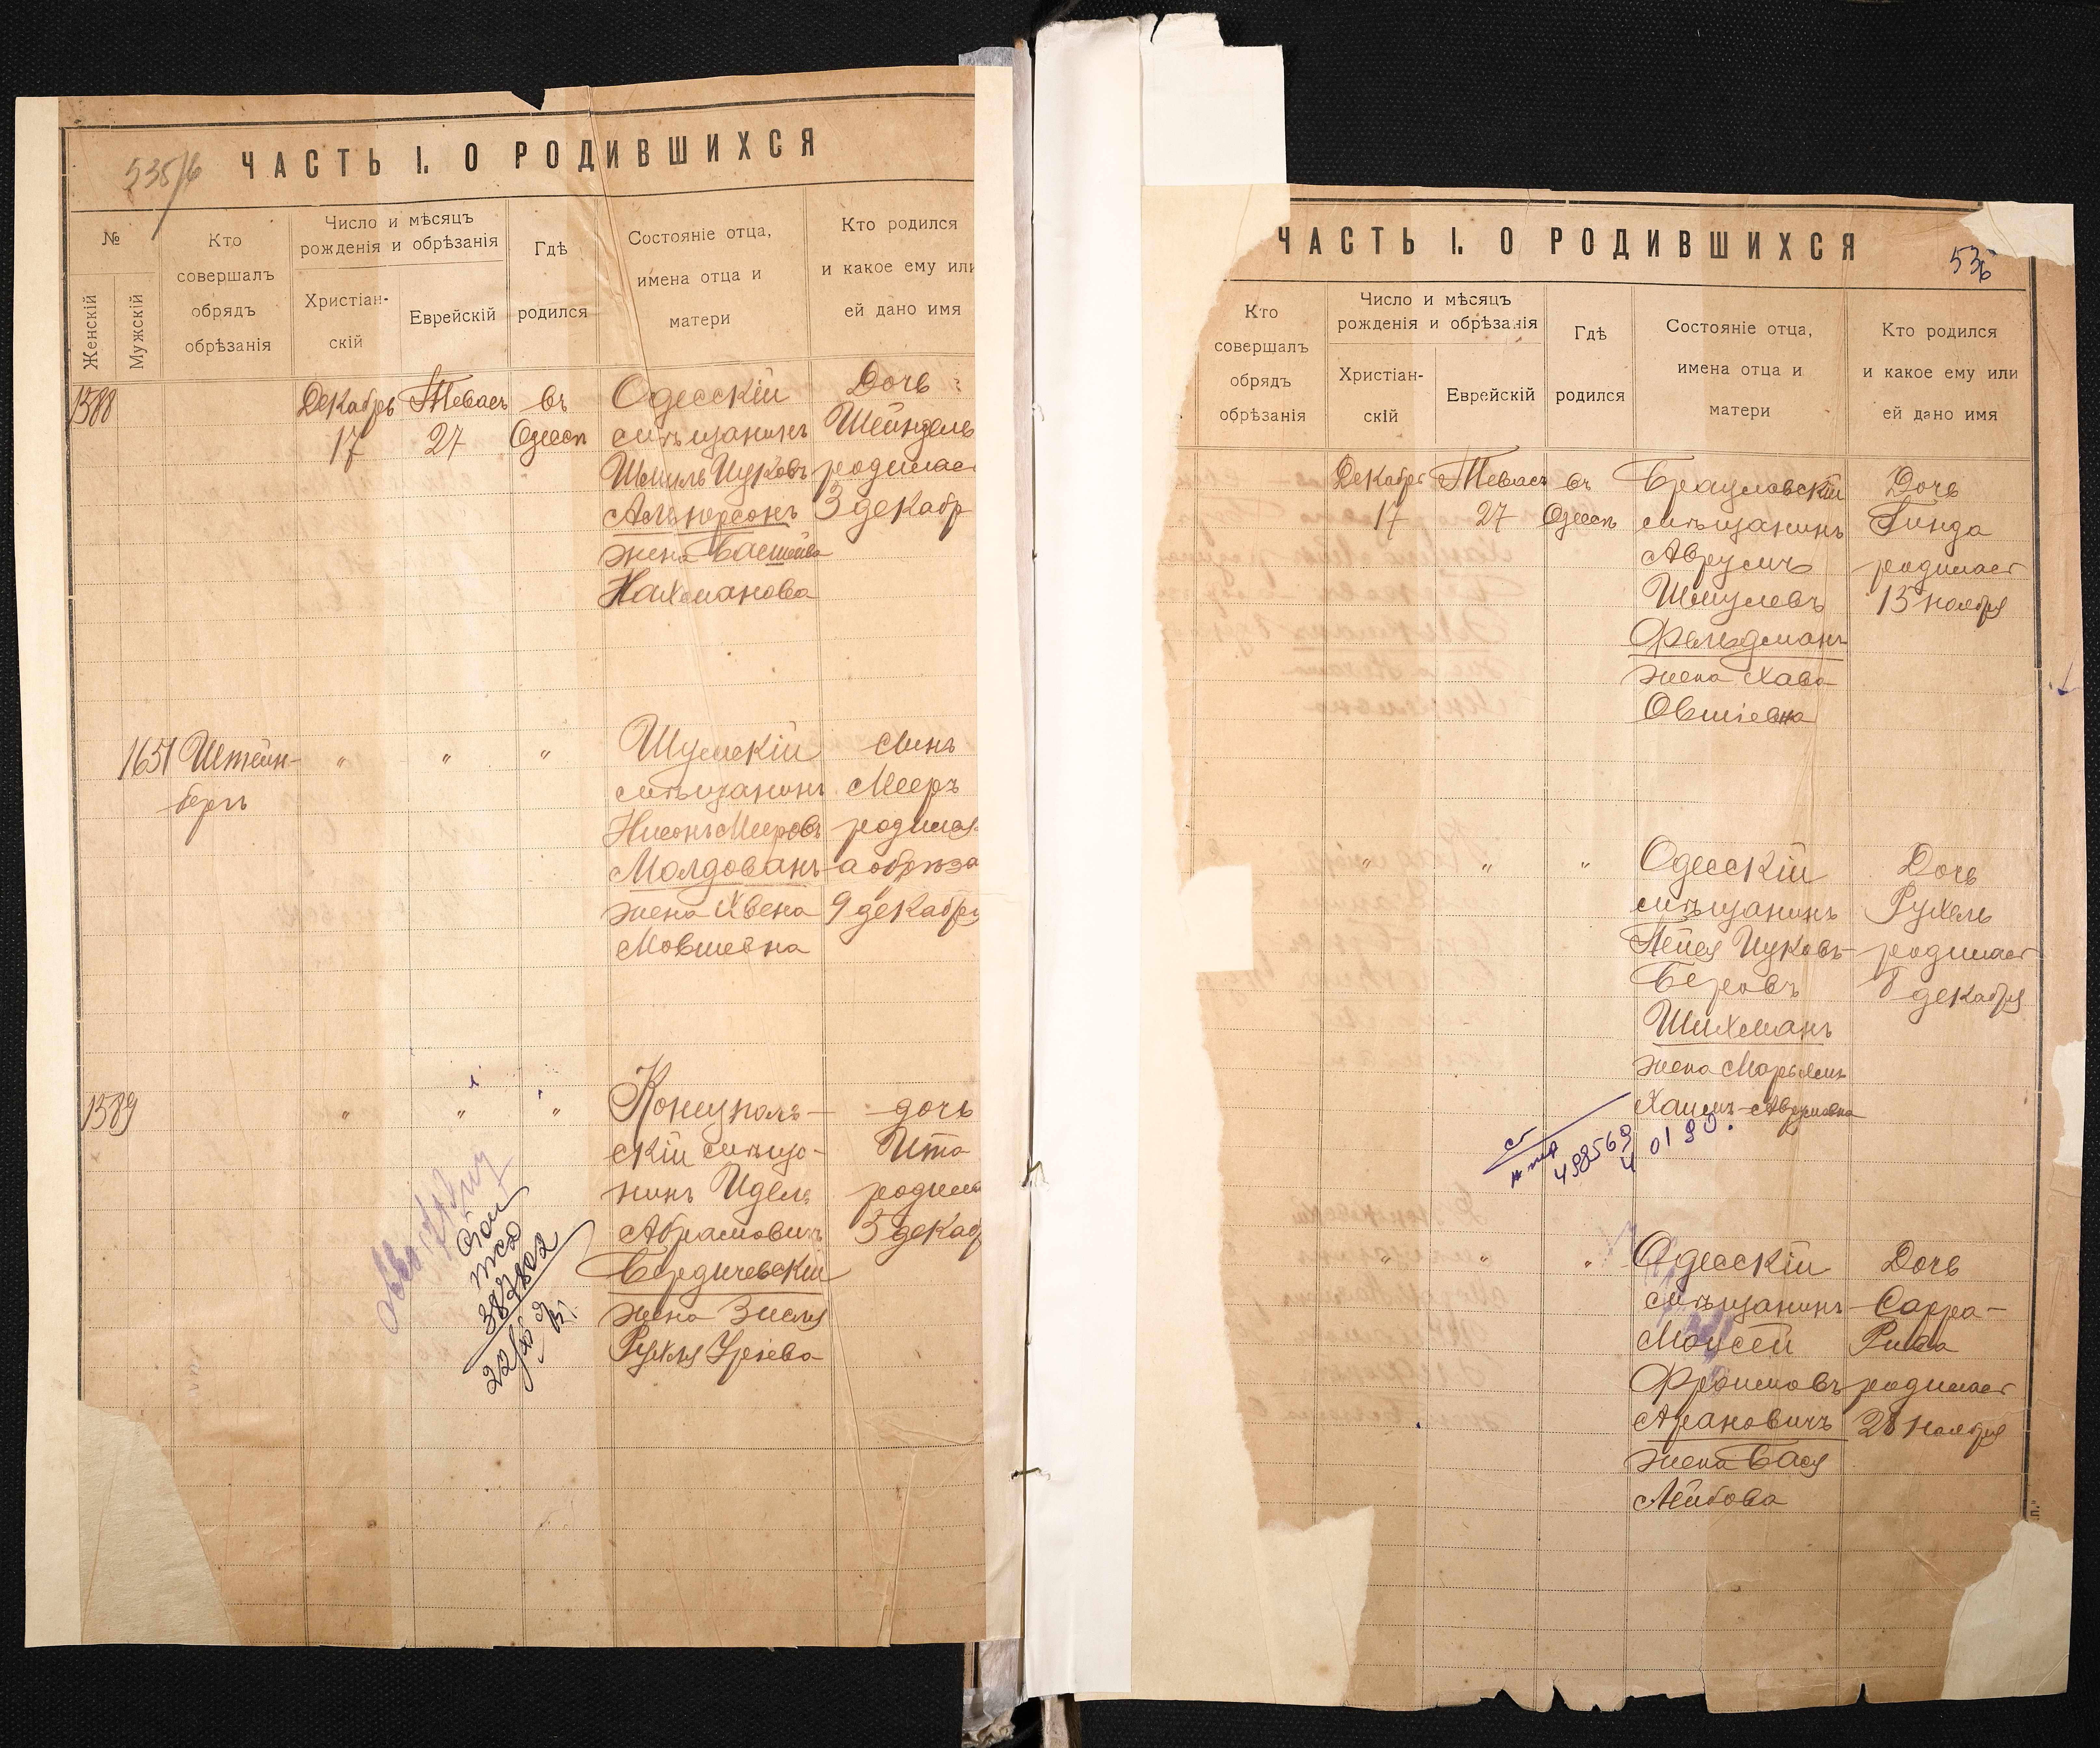 535/6
ЧАСТЬ I. О РОДИВШИХСЯ
№
Женскій
Мужскій
Кто
совершалъ
обрядъ
обрѣзанія
Число и мѣсяцъ
рожденія и обрѣзанія
Христіан-
скій
Еврейскій
Гдѣ
родился
Состояніе отца,
имена отца и
матери
Кто родился
и какое ему или
ей дано имя
1588
Декабрь
17
Тевасъ
27
въ
Одессѣ
Одесскій
мѣщанинъ
Шмиль Ицковъ
жена
Нахманова
Дочь
Шейндель
родилас
3 декабр
1651
Штейн-
бергъ
"
"
"
Шумскій
мѣщанинъ
Нисонъ Мееровъ
Молдованъ
жена Хвена
Мовшевна
Сынъ
Мееръ
родился
а обрѣза
9 декабря
1589
"
"
"
скій мѣща-
нинъ Идель
Абрамовичъ
Бердичевскій
жена Зисля
Рухля Уріева
дочь
Ита
родила
3 декаб
387802
ЧАСТЬ I. О РОДИВШИХСЯ
536
Кто
совершалъ
обрядъ
обрѣзанія
Число и мѣсяцъ
рожденія и обрѣзанія
Христіан-
скій
Еврейскій
Гдѣ
родился
Состояніе отца,
имена отца и
матери
Кто родился
и какое ему или
ей дано имя
Декабрь
17
Тевасъ
27
въ
Одессѣ
Брацлавскій
мѣщанинъ
Аврумъ
Шмулевъ
Фельдманъ
жена Хава
Овшіевна
Дочь
Гинда
родилас
15 ноября
"
"
"
Одесскій
мѣщанинъ
Пейся Ицковъ-
Беровъ
Шихманъ
жена Марьямъ
Хаимъ-Аврумовна
Дочь
Рухель
родилас
8 декабря
498569
4 01 90.
"
"
"
Одесскій
мѣщанинъ
Моусей
Фроимовъ
Арановичъ
жена Бася
Лейбова
Дочь
Сарра-
Рива
родилас
28 ноября